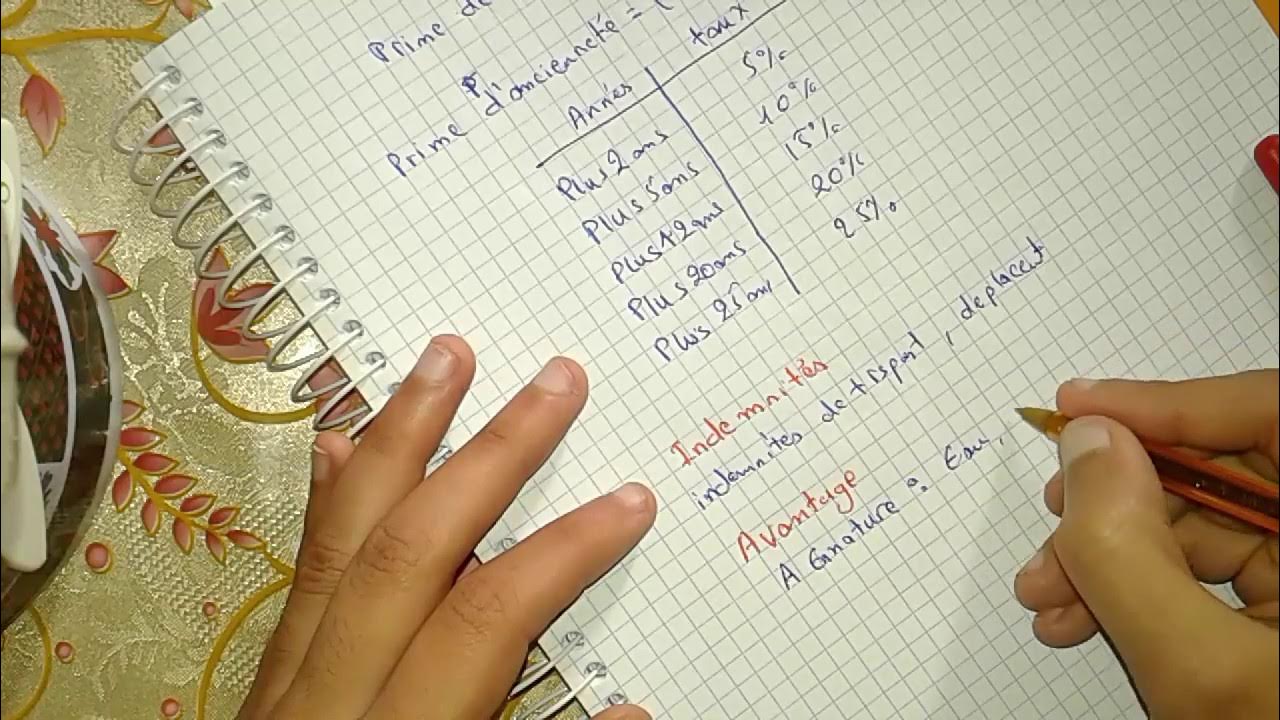 Prime de
Prime d'ancienneté = (
Années taux
Plus 2 ans 5%
Plus 5 ans 10%
Plus 12 ans 15%
Plus 20 ans 20%
Plus 25 ans 25%
Indemnités
indemnités de trspart, deplacet
Avantage
A Enature : Eau,